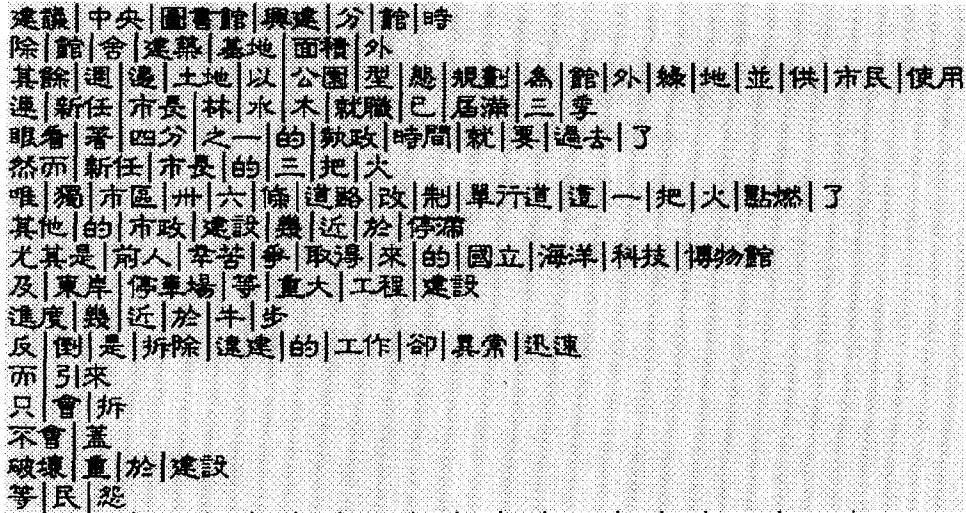 建議|中央|圖書館|興建|分|館|時
除|館|舍|建築|基地|面積|外
其餘|週|邊|土地|以|公園|型|態|規劃|為|館|外|綠|地|並|供|市民|使用
連|新任|市長|林|水|木|就職|已|屆滿|三|季
眼看|著|四分|之一|的|執政|時間|就|要|過去|了
然而|新任|市長|的|三|把|火
唯|獨|市區|卅|六|條|道路|改|制|單行道|這|一|把|火|點燃|了
其他|的|市政|建設|幾|近|於|停滯
尤其是|前人|辛苦|爭|取得|來|的|國立|海洋|科技|博物館
及|東岸|停車場|等|重大|工程|建設
進度|幾|近|於|牛|步
反|倒|是|拆除|違建|的|工作|卻|異常|迅速
而|引來
只|會|拆
不會|蓋
破壞|重|於|建設
等|民|怨